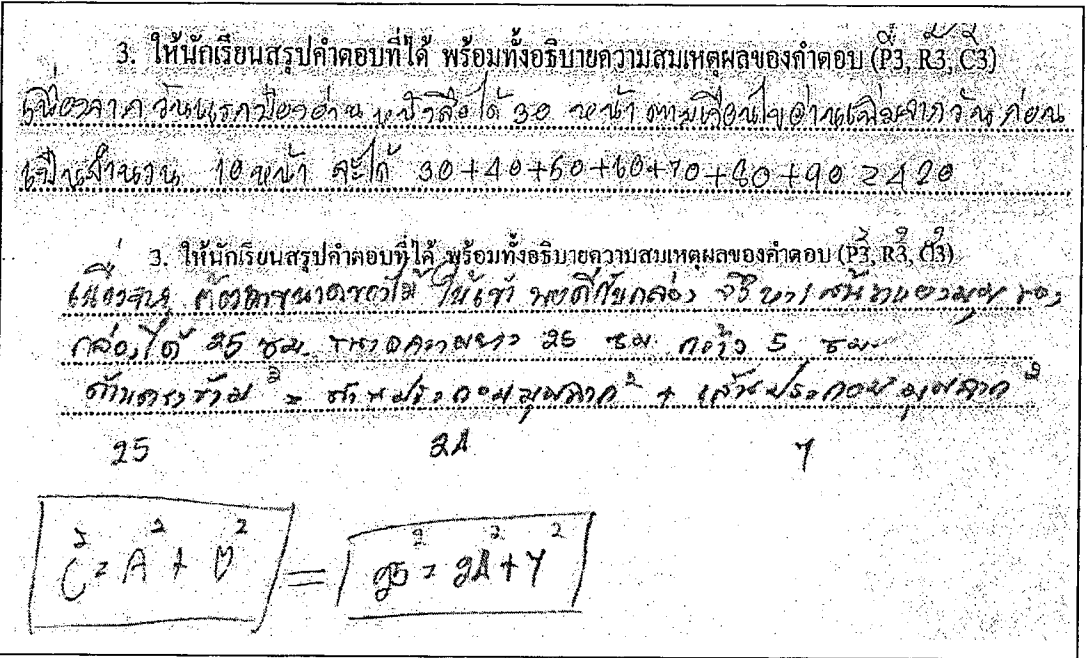 3. ให้นักเรียนสรุปคำตอบที่ได้ พร้อมทั้งอธิบายความสมเหตุผลของคำตอบ (P3, R3, C3)
เนื่องจาก วันแรกป๋องอ่าน หนังสือได้ 30 หน้า ตามเงื่อนไขอ่านเพิ่มจากวันก่อน
เป็นจำนวน 10 หน้า จะได้ 30+40+50+60+70+80+90 = 420
3. ให้นักเรียนสรุปคำตอบที่ได้ พร้อมทั้งอธิบายความสมเหตุผลของคำตอบ (P3, R3, C3)
ต้องหาขนาดของไม้ ให้เข้า พอดีกับกล่อง เส้นทแยงมุม ของ
กล่องได้ 25 ซม. ขนาดความยาว 25 ซม กว้าง 5 ซม.
ด้านตรงข้าม² = ด้านประกอบมุมฉาก² + เส้นประกอบมุมฉาก²
25 24 7
C² = A² + B² = 25² = 24² + 7²